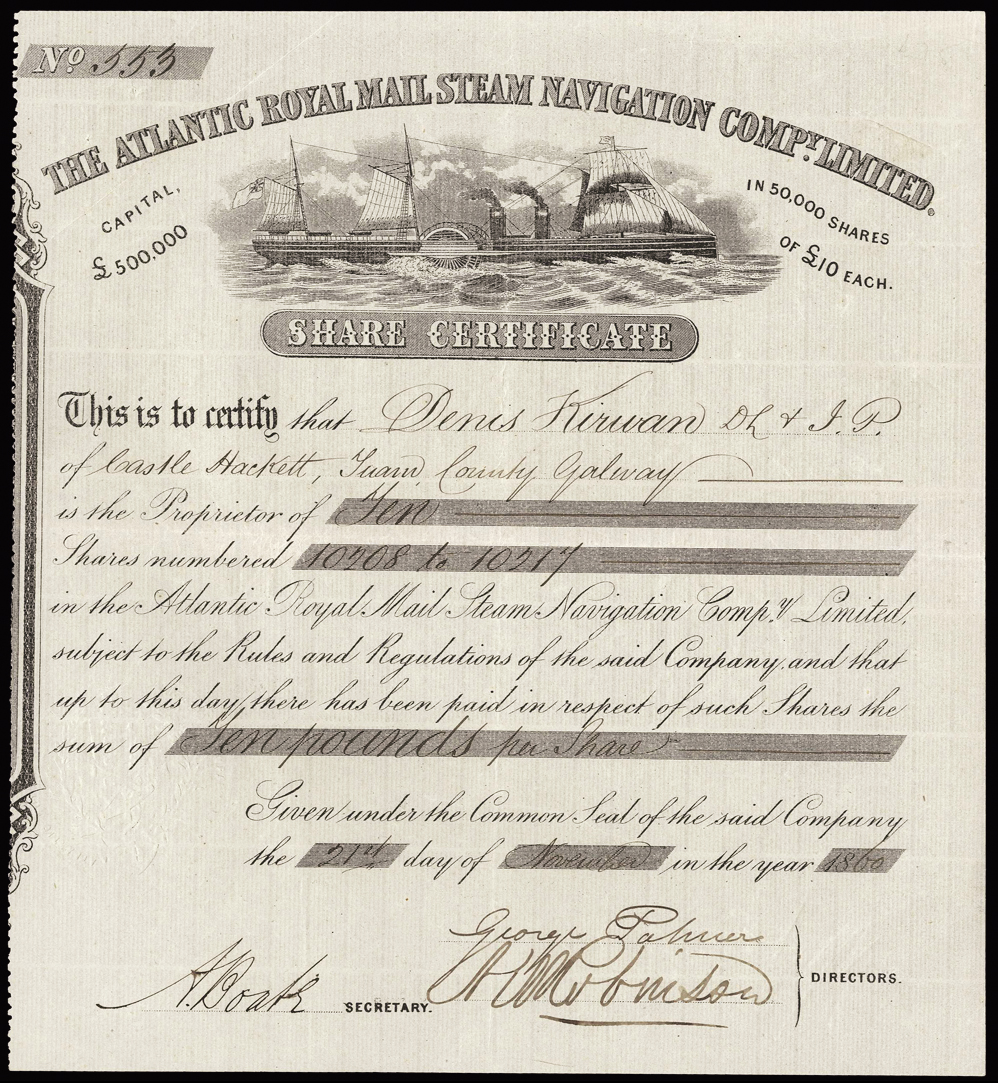 No. 553
THE ATLANTIC ROYAL MAIL STEAM NAVIGATION COMPY. LIMITED.
CAPITAL,
£500,000
IN 50,000 SHARES
OF £10 EACH.
SHARE CERTIFICATE
This is to certify that Denis Kirwan DL & J.P.
of Castle Hackett, Tuam County Galway
is the Proprietor of Ten
Shares numbered 10208 to 10217
in the Atlantic Royal Mail Steam Navigation Comp.y Limited,
subject to the Rules and Regulations of the said Company, and that
up to this day, there has been paid in respect of such Shares the
sum of Ten pounds per Share
Given under the Common Seal of the said Company
the 21st day of November in the year 1860
George Palmer
Robinson
DIRECTORS.
A. Boate SECRETARY.